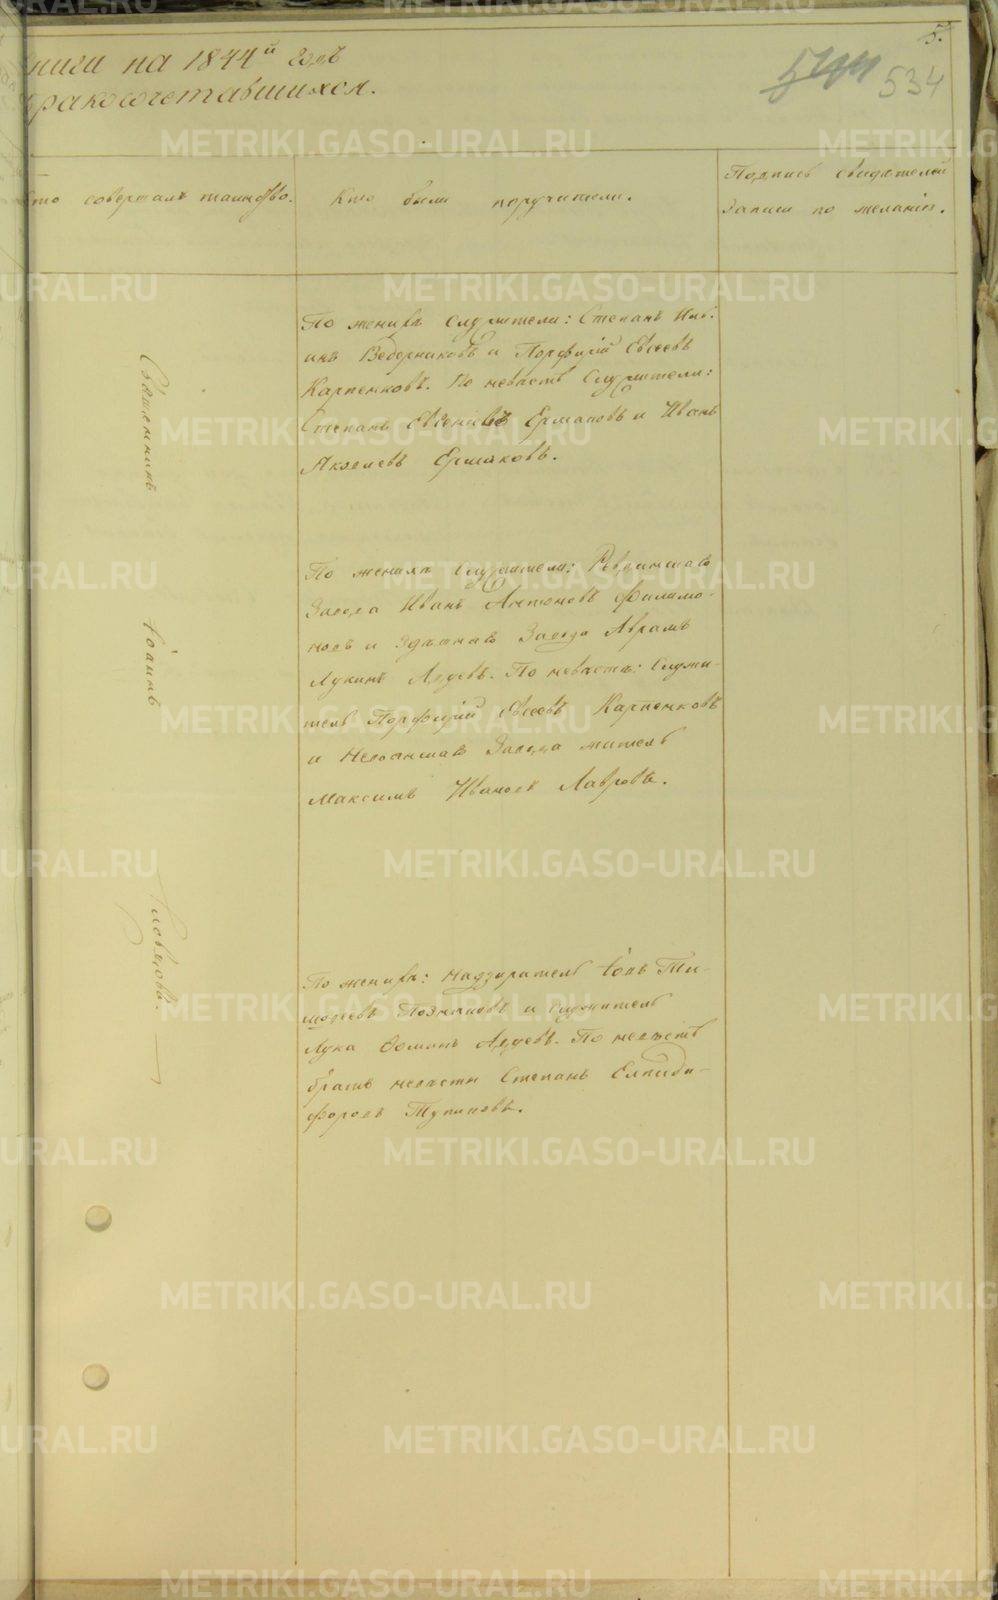 ниги на 1844й годъ
ракосочетавшихся.
5.
534
то совершалъ таинство.
Кто были поручители.
Подпись свидѣтелей
записи по желанію.
Священникъ Іоаннъ
По женихѣ служители: Степанъ Иль-
инъ Ведерниковъ и Порфирій Евсеевъ
Карпенковъ. По невѣстѣ служители:
Степанъ Евсеевъ Ермаковъ и Иванъ
Яковлевъ Ермаковъ.
По женихѣ служители: Ревдинскаго
Завода Иванъ Антоновъ Филимо-
новъ и здѣшняго Завода Аврамъ
Лукинъ Ардуевъ. По невѣстѣ: служи-
тель Порфирій Евсеевъ Карпенковъ
и Невьянскаго Завода житель
Максимъ Ивановъ Лавровъ.
По женихѣ: надзиратель Іовъ Ти-
мофеевъ и служитель
Лука Фоминъ Ардуевъ. По невѣстѣ
братъ невѣсты Степанъ Елпиди-
форовъ Тупицовъ.
METRIKI.GASO-URAL.RU